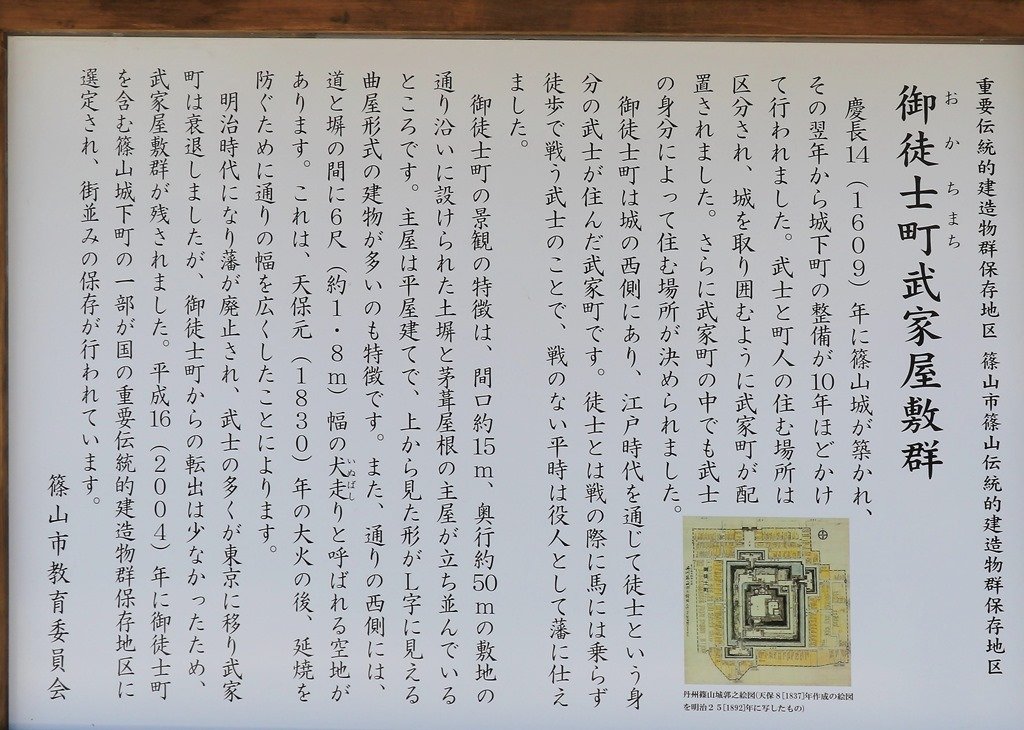 重要伝統的建造物群保存地区 篠山市篠山伝統的建造物群保存地区
おかちまち
御徒士町武家屋敷群
慶長14（1609）年に篠山城が築かれ、
その翌年から城下町の整備が10年ほどかけ
て行われました。武士と町人の住む場所は
区分され、城を取り囲むように武家町が配
置されました。さらに武家町の中でも武士
の身分によって住む場所が決められました。
御徒士町は城の西側にあり、江戸時代を通じて徒士という身
分の武士が住んだ武家町です。徒士とは戦の際に馬には乗らず
徒歩で戦う武士のことで、戦のない平時は役人として藩に仕え
ました。
御徒士町の景観の特徴は、間口約15m、奥行約50mの敷地の
通り沿いに設けられた土塀と茅葺屋根の主屋が立ち並んでいる
ところです。主屋は平屋建てで、上から見た形がL字に見える
曲屋形式の建物が多いのも特徴です。また、通りの西側には、
道と塀の間に6尺（約1・8m）幅の犬走りと呼ばれる空地が
いぬばし
あります。これは、天保元（1830）年の大火の後、延焼を
防ぐために通りの幅を広くしたことによります。
明治時代になり藩が廃止され、武士の多くが東京に移り武家
町は衰退しましたが、御徒士町からの転出は少なかったため、
武家屋敷群が残されました。平成16（2004）年に御徒士町
を含む篠山城下町の一部が国の重要伝統的建造物群保存地区に
選定され、街並みの保存が行われています。
篠山市教育委員会
丹州篠山城郭之絵図(天保8[1837]年作成の絵図
を明治25[1892]年に写したもの)